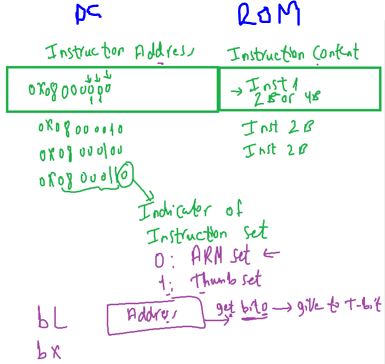 PC ROM
Instruction Address Instruction Content
0x08000000 → Inst 1
11 2B or 4B
0x08000010 Inst 2B
0x08000100 Inst 2B
0x08000110
Indicator of
Instruction set
0: ARM set ←
1: Thumb set
bL Address get bit0 → give to T-bit
bx